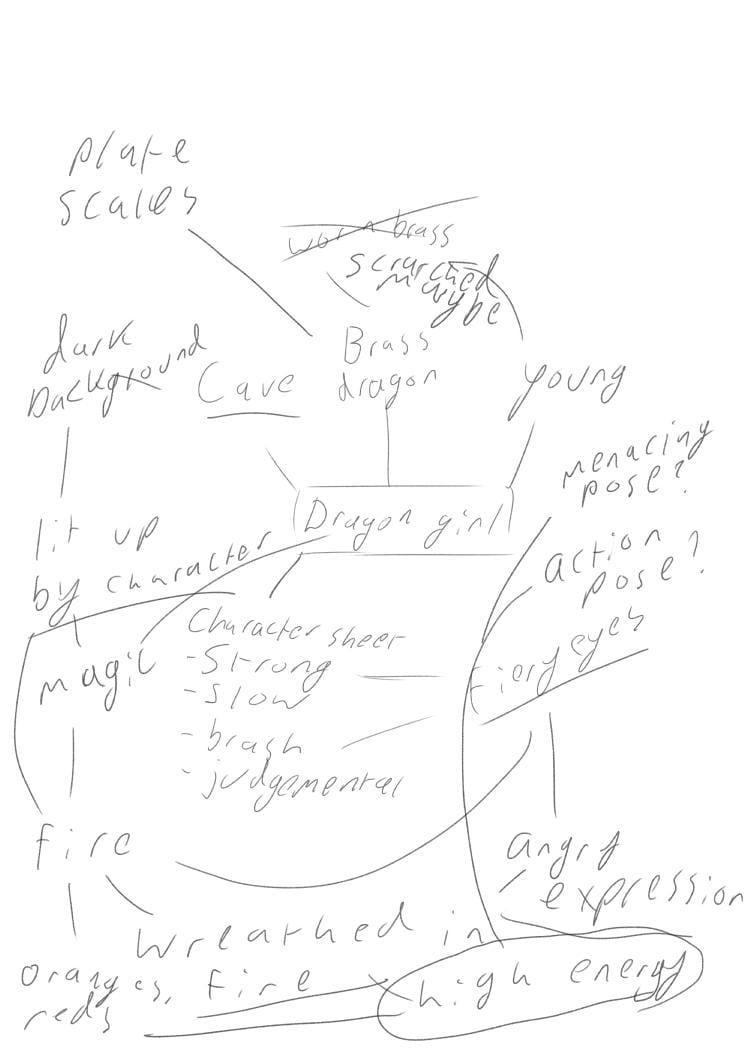 plate
scales
worn brass
scratched
maybe
dark
background
Cave
Brass
dragon
young
menacing
pose?
Dragon girl
action
pose?
lit up
by character
magic
Character sheet
- Strong
- Slow
- brash
- judgemental
fiery eyes
fire
angry
expression
wreathed in
fire
oranges,
reds
high energy